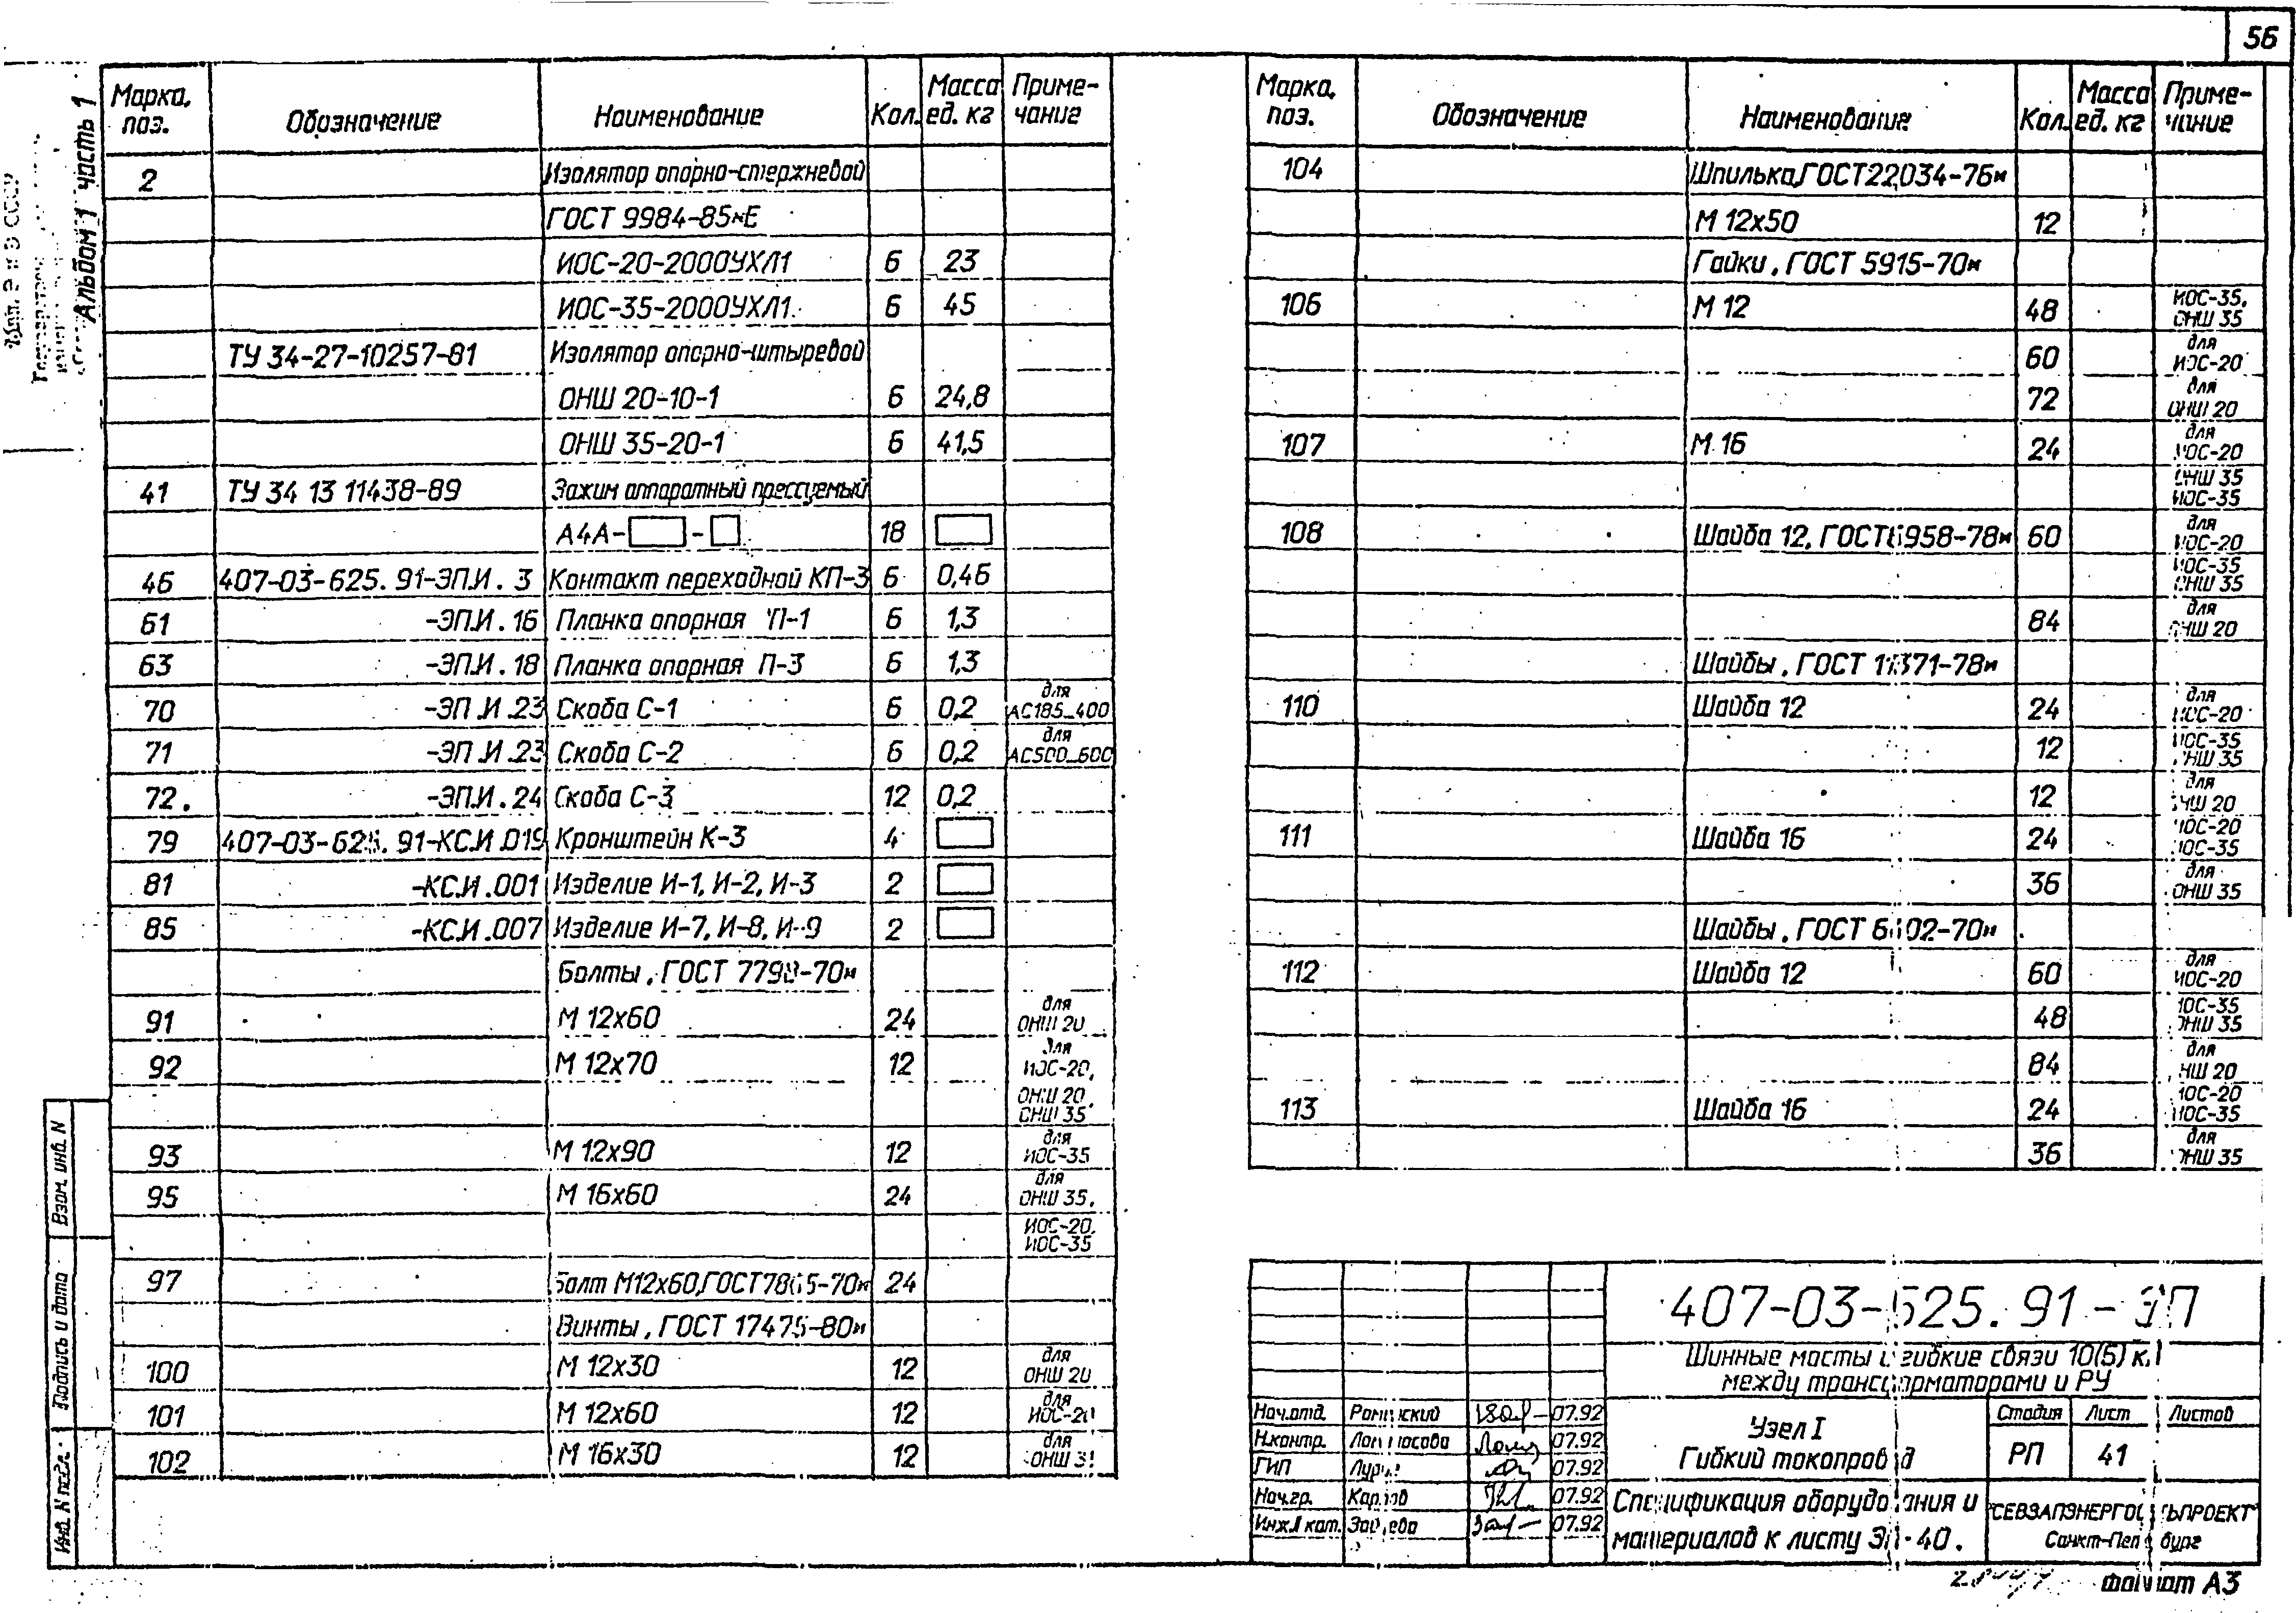 56
Альбом 1 часть 1
Марка, поз. Обозначение Наименование Кол. Масса ед. кг Приме-чание
2 Изолятор опорно-стержневой
ГОСТ 9984-85*Е
ИОС-20-2000УХЛ1 6 23
ИОС-35-2000УХЛ1. 6 45
ТУ 34-27-10257-81 Изолятор опорно-штыревой
ОНШ 20-10-1 6 24,8
ОНШ 35-20-1 6 41,5
41 ТУ 34 13 11438-89 Зажим аппаратный прессуемый
А4А- - 18
46 407-03-625.91-ЭП.И.3 Контакт переходной КП-3 6 0,46
61 -ЭП.И.16 Планка опорная П-1 6 1,3
63 -ЭП.И.18 Планка опорная П-3 6 1,3
70 -ЭП.И.23 Скоба С-1 6 0,2 для АС185...400
71 -ЭП.И.23 Скоба С-2 6 0,2 для АС500...600
72. -ЭП.И.24 Скоба С-3 12 0,2
79 407-03-625.91-КС.И.019 Кронштейн К-3 4
81 -КС.И.001 Изделие И-1, И-2, И-3 2
85 -КС.И.007 Изделие И-7, И-8, И-9 2
Болты, ГОСТ 7798-70*
91 М 12х60 24 для ОНШ 20
92 М 12х70 12 для ИОС-20,
ОНШ 20, ОНШ 35
93 М 12х90 12 для ИОС-35
95 М 16х60 24 для ОНШ 35,
ИОС-20, ИОС-35
97 Болт М12х60, ГОСТ 78 5-70* 24
Винты, ГОСТ 17475-80*
100 М 12х30 12 для ОНШ 20
101 М 12х60 12 для ИОС-20
102 М 16х30 12 для ОНШ 35
Марка, поз. Обозначение Наименование Кол. Масса ед. кг Приме-чание
104 Шпилька, ГОСТ 22034-76*
М 12х50 12
Гайки, ГОСТ 5915-70*
106 М 12 48 ИОС-35, ОНШ 35
60 для ИОС-20
72 для ОНШ 20
107 М 16 24 для ИОС-20
ОНШ 35 ИОС-35
108 Шайба 12, ГОСТ 6958-78* 60 для ИОС-20
ИОС-35 ОНШ 35
84 для ОНШ 20
Шайбы, ГОСТ 11371-78*
110 Шайба 12 24 для ИОС-20
12 ИОС-35 ОНШ 35
12 для ОНШ 20
111 Шайба 16 24 ИОС-20 ИОС-35
36 для ОНШ 35
Шайбы, ГОСТ 6402-70*
112 Шайба 12 60 для ИОС-20
48 ИОС-35 ОНШ 35
84 для ОНШ 20
113 Шайба 16 24 ИОС-20 ИОС-35
36 для ОНШ 35
407-03-625.91-ЭП
Шинные мосты и гибкие связи 10(6) кВ
между трансформаторами и РУ
Нач.отд. 07.92
Н.контр. Ломоносова 07.92
ГИП 07.92
Нач.гр. Карпов 07.92
Инж.I кат. 07.92
Узел I
Гибкий токопровод
Стадия Лист Листов
РП 41
Спецификация оборудования и
материалов к листу ЭП-40.
"СЕВЗАПЭНЕРГОСЕТЬПРОЕКТ"
Санкт-Петербург
Формат А3
Взам. инв. N
Подпись и дата
Инв. N подл.